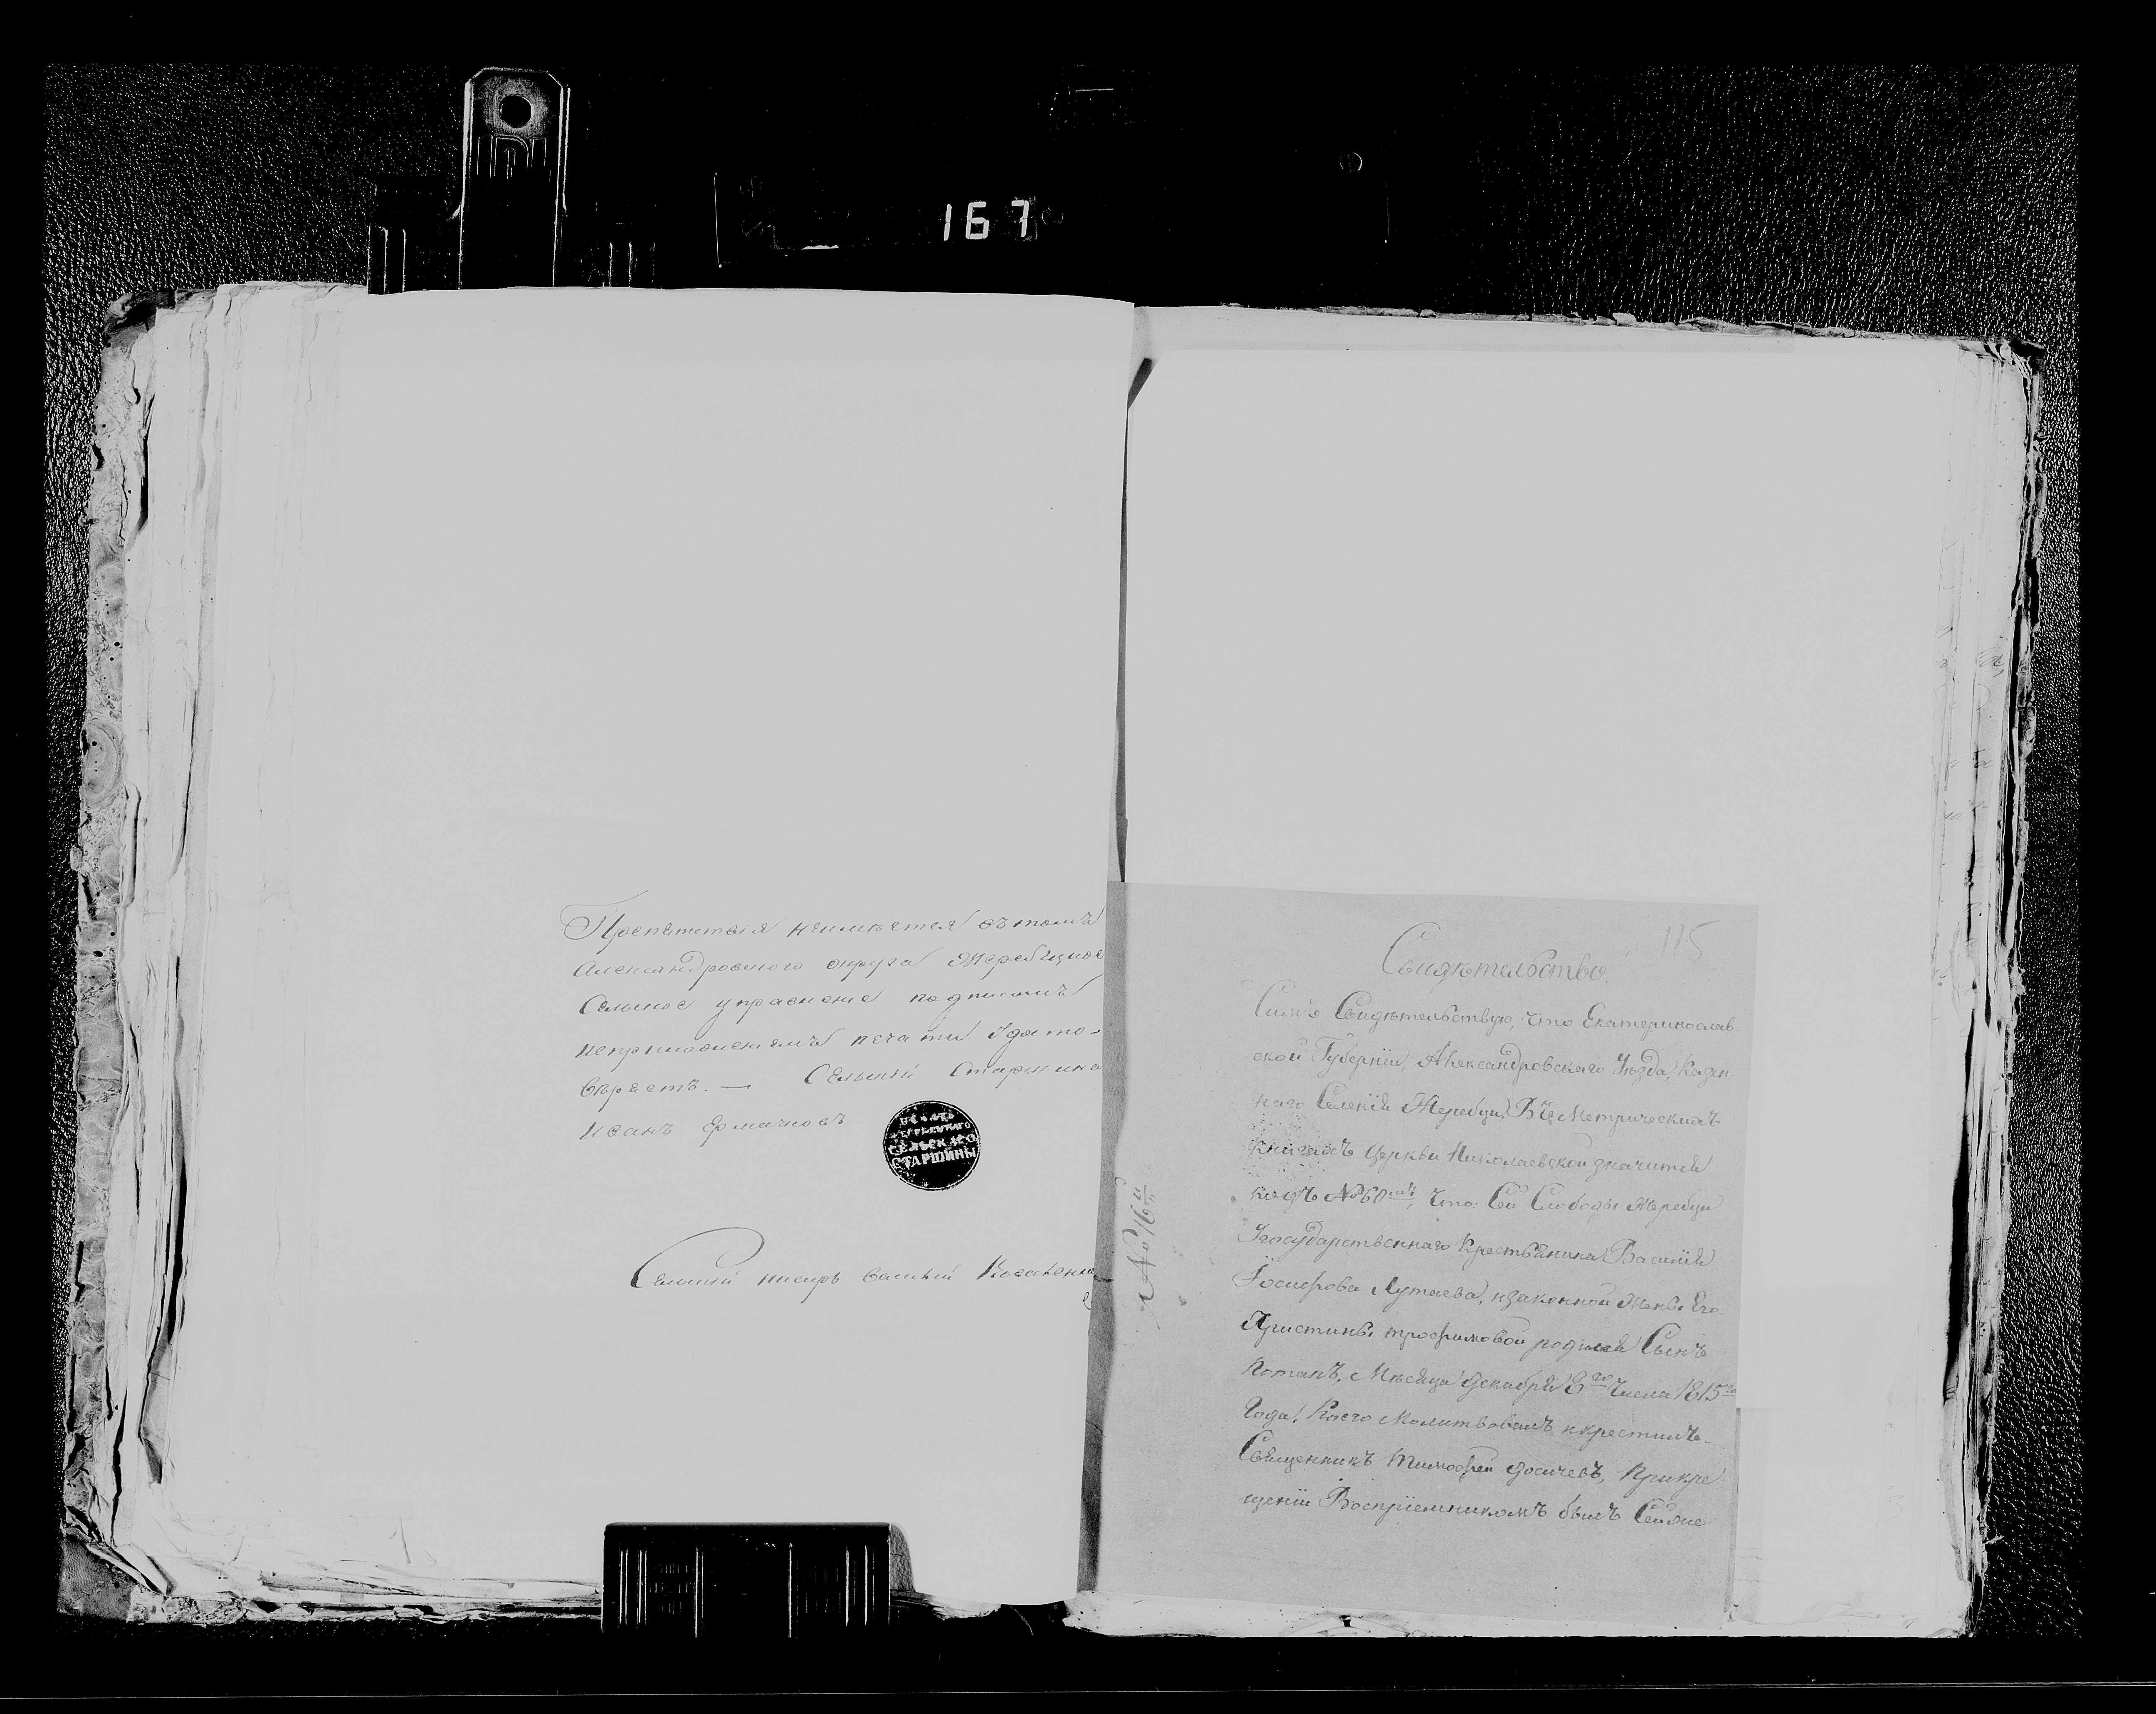 167
Препятствія неимѣется въ томъ
Александровскаго округа Жеребецкое
Сельское управленіе подписомъ
исприложеніемъ печати Удосто-
вѣряетъ. — Сельскій Старшина
Иванъ Ермачковъ
ПЕЧАТЬ
ЖЕРЕБЕЦКАГО
СЕЛЬСКАГО
СТАРШИНЫ
Сельскій писарь Василій
115
Свидѣтельство.
Симъ Свидѣтельствую, что Екатеринослав-
ской Губерніи, Александровскаго Уѣзда, Казен-
наго Селенія Жеребца, Въ Метрическихъ
книгахъ Церкви Николаевской значится
подъ № 60мъ, что: Сей Слободы Жеребца
Государственнаго Крестьянина Василія
Іосифова Лутаева, изаконной Жены Его
Христины трофимовой родился Сынъ
Потапъ, Мѣсяца Декабря 8го Числа 1815го
Года! Коего Молитвовалъ икрестилъ
Священникъ Тимофей Прикре
щеніи Воспріемникомъ былъ Сей же
№ 16й